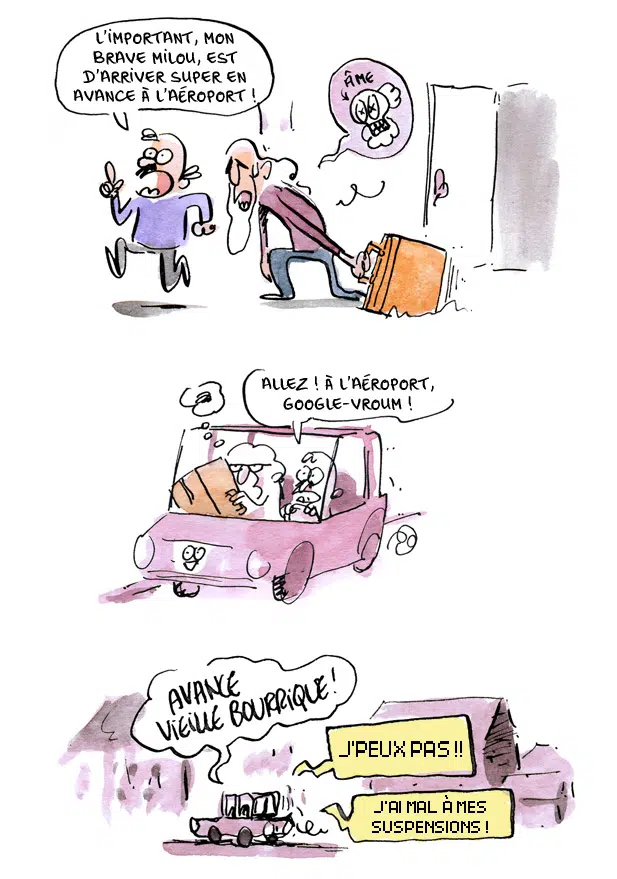 L'IMPORTANT, MON
BRAVE MILOU, EST
D'ARRIVER SUPER EN
AVANCE À L'AÉROPORT !
ÂME
ALLEZ ! À L'AÉROPORT,
GOOGLE-VROUM !
AVANCE
VIEILLE BOURRIQUE !
J'PEUX PAS !!
J'AI MAL À MES
SUSPENSIONS !